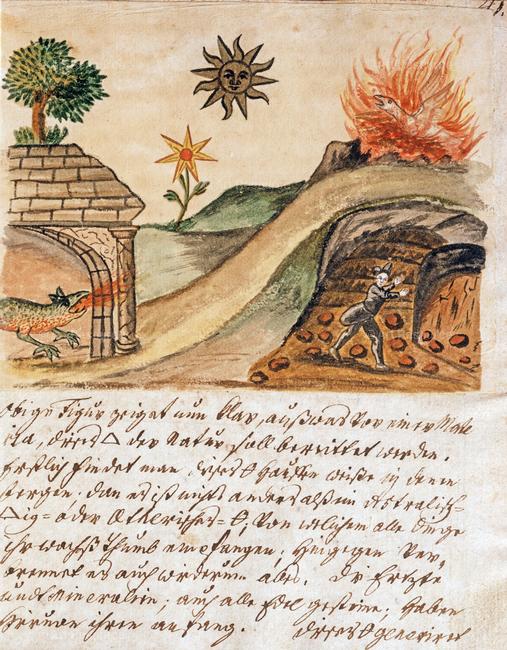 Obige Figur zeiget nun klar, auß was vor einer Mate
ria, dieses △ der Natur soll bereittet werden.
Erstlich findet man dieses häuffig in denen
bergen. dan es ist nichts anders alß ein Astralisch-
oder Ætherisches von welchem alle Dinge
ihr wachsthumb empfangen; Hingegen Ver-
brennet es auch wiederum alles. Die Ertzte
undt Mineralien; auch alle Edelgesteine; haben
hiervon ihren anfang. dieses generiret